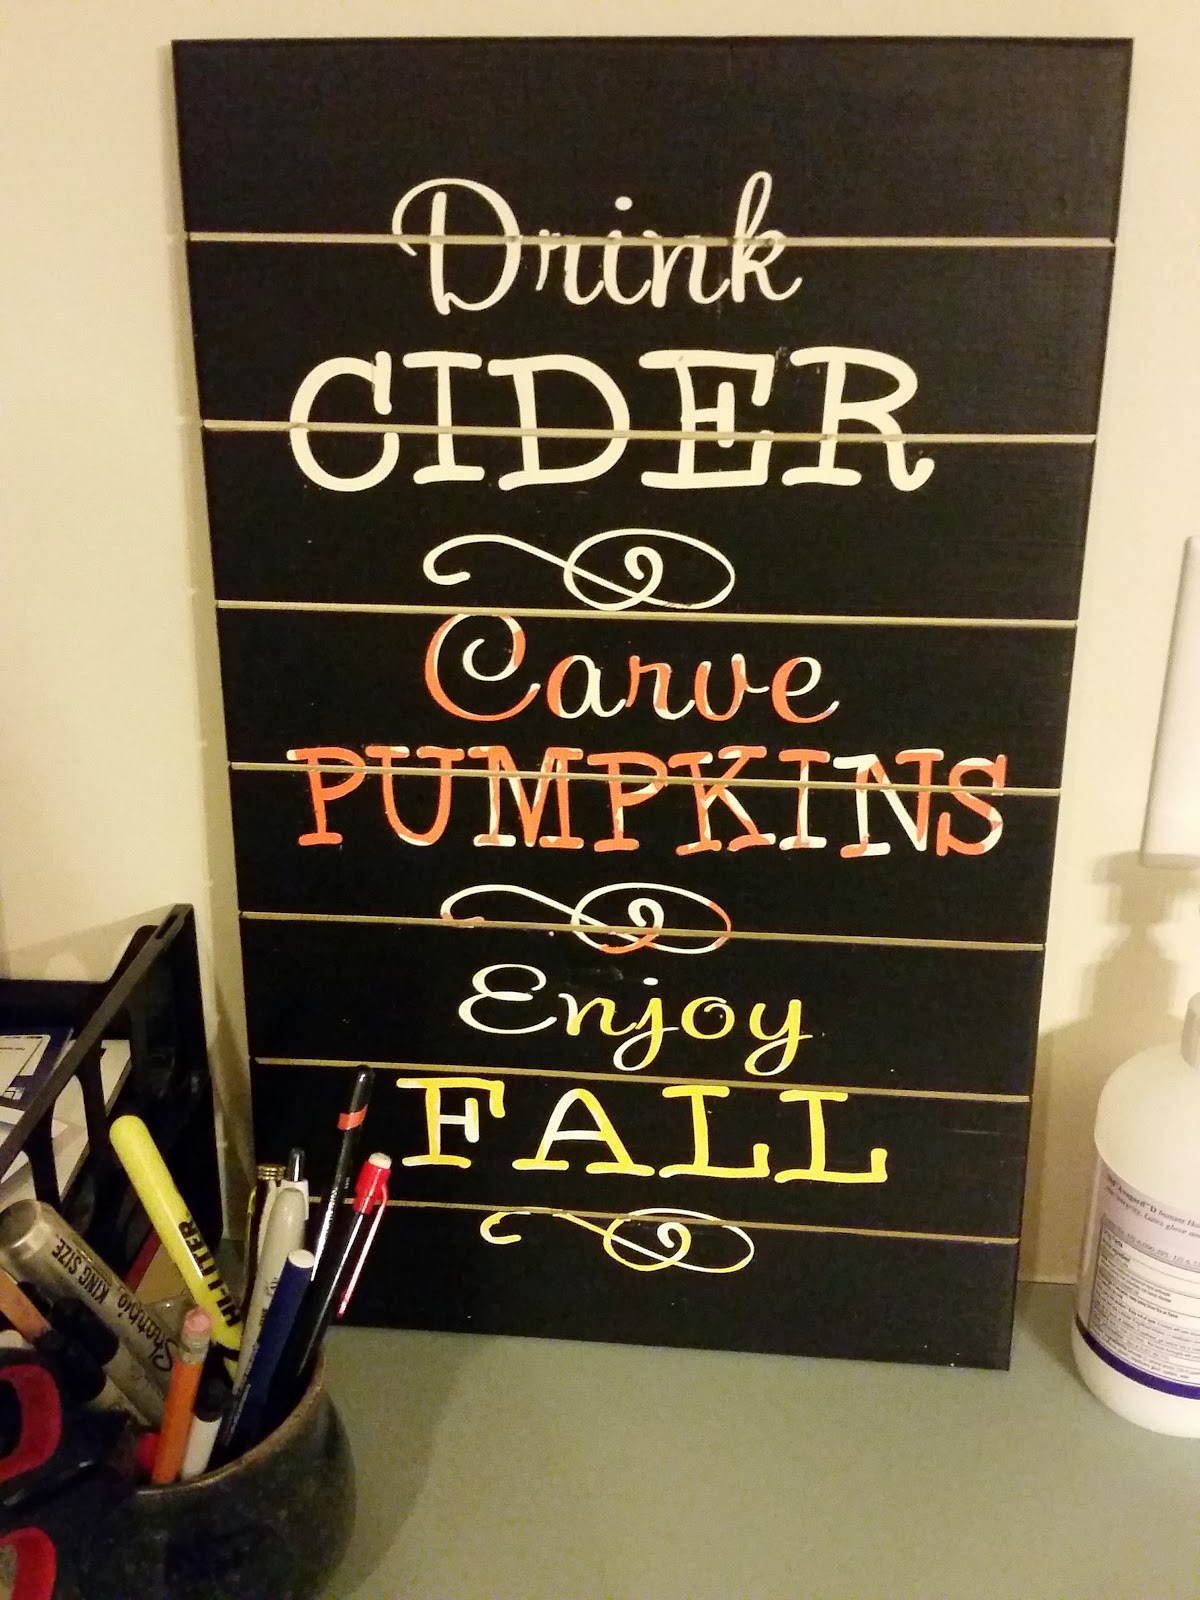 Drink
CIDER
Carve
PUMPKINS
Enjoy
FALL
HI-LITER
Sharpie
KING SIZE
Avagard D